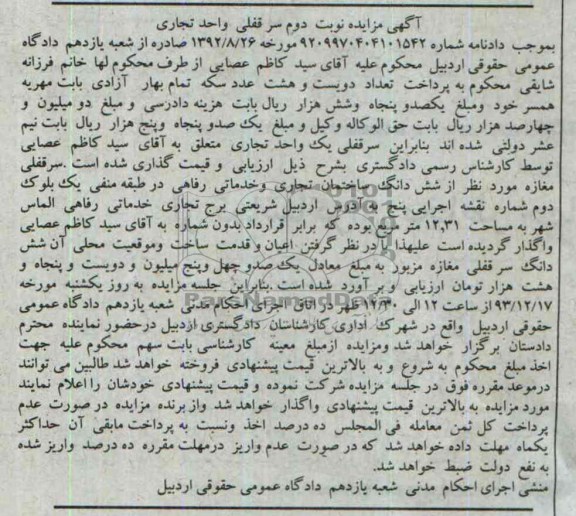 آگهی مزایده نوبت دوم سر قفلی واحد تجاری
بموجب دادنامه شماره ۹۲۰۹۹۷۰۴۰۴۱۰۱۵۴۲ مورخه ۱۳۹۲/۸/۲۶ صادره از شعبه یازدهم دادگاه
عمومی حقوقی اردبیل محکوم علیه آقای سید کاظم عصایی از طرف محکوم لها خانم فرزانه
شایقی محکوم به پرداخت تعداد دویست و هشت عدد سکه تمام بهار آزادی بابت مهریه
همسر خود ومبلغ یکصدو پنجاه وشش هزار ریال بابت هزینه دادرسی و مبلغ دو میلیون و
چهارصد هزار ریال بابت حق الوکاله وکیل و مبلغ یک صدو پنجاه وپنج هزار ریال بابت نیم
عشر دولتی شده اند بنابراین سرقفلی یک واحد تجاری متعلق به آقای سید کاظم عصایی
توسط کارشناس رسمی دادگستری بشرح ذیل ارزیابی و قیمت گذاری شده است .سرقفلی
مغازه مورد نظر از شش دانگ ساختمان تجاری وخدماتی رفاهی در طبقه منفی یک بلوک
دوم شماره نقشه اجرایی پنج به آدرس اردبیل شریعتی برج تجاری خدماتی رفاهی الماس
شهر به مساحت ۱۲,۳۱ متر مربع بوده که برابر قرارداد بدون شماره به آقای سید کاظم عصایی
واگذار گردیده است علیهذا با در نظر گرفتن اعیان و قدمت ساخت وموقعیت محلی آن شش
دانگ سر قفلی مغازه مزبور به مبلغ معادل یک صدو چهل وپنج میلیون و دویست و پنجاه و
هشت هزار تومان ارزیابی و بر آورد شده است .بنابراین جلسه مزایده به روز یکشنبه مورخه
۹۳/۱۲/۱۷ از ساعت ۱۲ الی ۱۲/۳۰ ظهر در اتاق اجرای احکام مدنی شعبه یازدهم دادگاه عمومی
حقوقی اردبیل واقع در شهرک اداری کارشناسان دادگستری اردبیل درحضور نماینده محترم
دادستان برگزار خواهد شد ومزایده ازمبلغ معینه کارشناسی بابت سهم محکوم علیه جهت
اخذ مبلغ محکوم به شروع و به بالاترین قیمت پیشنهادی فروخته خواهد شد طالبین می توانند
درموعد مقرره فوق در جلسه مزایده شرکت نموده و قیمت پیشنهادی خودشان را اعلام نمایند
مورد مزایده به بالاترین قیمت پیشنهادی واگذار خواهد شد واز برنده مزایده در صورت عدم
پرداخت کل ثمن معامله فی المجلس ده درصد اخذ ونسبت به پرداخت مابقی آن حداکثر
یکماه مهلت داده خواهد شد که در صورت عدم واریز درمهلت مقرره ده درصد واریز شده
به نفع دولت ضبط خواهد شد.
منشی اجرای احکام مدنی شعبه یازدهم دادگاه عمومی حقوقی اردبیل